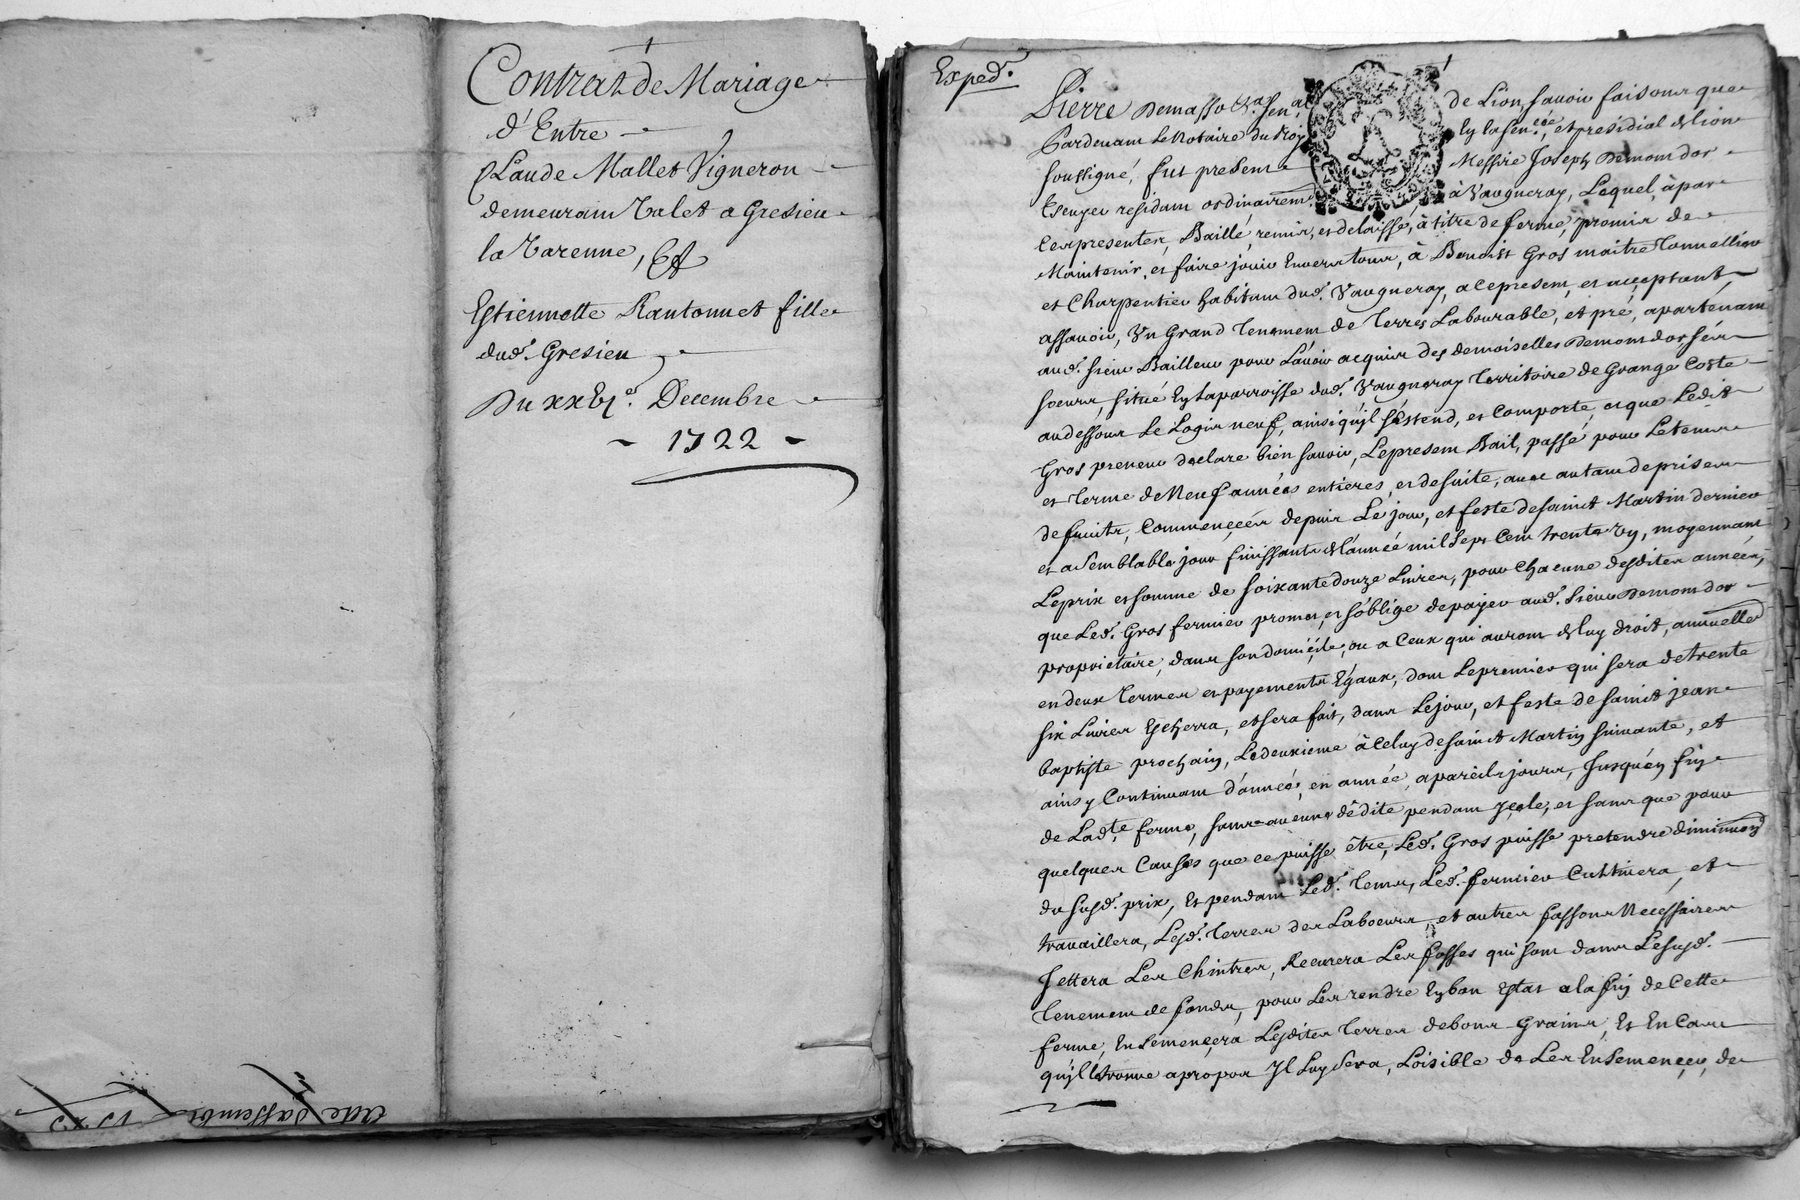 Contrat de Mariage
d'Entre
Claude Mallet Vigneron
demeurant Valet a Gresieu
la Varenne, Et
Estiennette Rantonnet fille
dud. Gresieu
Du xxbje. Decembre
- 1722 -
Acte
Exped.
Pierre Demasso &a. sen.al de Lion, savoir faisons que
Pardevant Le Notaire du Roy En la sen.cée, et presidial de Lion
soussigné, fut present Messire Joseph Demomdor
Escuyer residant ordinairemt. à Vaugneray, Lequel, à par
Ces presentes, Baillé, remis, et delaissé, à titre de ferme, promis de
Maintenir, et faire jouir Envers tous, à Benoist Gros maitre Tonnellier
et Charpentier habitant dud. Vaugneray, a ce present, et acceptant
assavoir, Un Grand Tenement de Terres Labourable, et pré, apartenant
aud. sieur Bailleur pour L'avoir acquis des demoiselles Demomdor ses
soeurs, situé En La parroisse dud. Vaugneray Territoire de Grange Coste
audessous Le Logis neuf, ainsi qu'il s'éstend, et Comporte, et que Ledit
Gros preneur declare bien savoir, Le present Bail, passé pour Le tems
et terme de Neuf années entieres, et de suite, avec autant de prises
de fruits, Commencées depuis Le jour, et feste de sainct Martin dernier
et a Semblable jour finissant de L'année mil Sept Cent trente un, moyennant
Le prix et somme de soixante douze Livres, pour Chacune desdites années,
que Led. Gros fermier promet, et s'oblige de payer aud. Sieur Demomdor
propriétaire, dans son domicile, ou a Ceux qui auront de luy droit, annuellemt.
en deux Termes et payements Egaux, dont Le premier qui sera de trente
six Livres Escherra, et sera fait, dans Le jour, et feste de sainct jean
baptiste prochain, Le deuxieme à Celuy de sainct Martin suivante, et
ainsy Continuant d'année, en année, a pareils jours, Jusqu'en fin
de Lad.te ferme, sans aucune dédite pendant Icele, et sans que pour
quelques Causes que ce puisse être, Led. Gros puisse pretendre diminuon
du susd. prix, Et pendant Led. Tems, Led. fermier Cultivera, et
travaillera, Lesd. Terres des Laboeurs, et autres fassons Necessaires
Jettera Les Chintres, Recurera Les fosses qui sont dans Le susd.
Tenement de fonds, pour Les rendre En bon Estat a la fin de Cette
ferme, Ensemencera Lesdites Terres de bons Grains, Et En Cas
qu'il trouve a propos Il Luy Sera, Loisible de Les Ensemencer, de